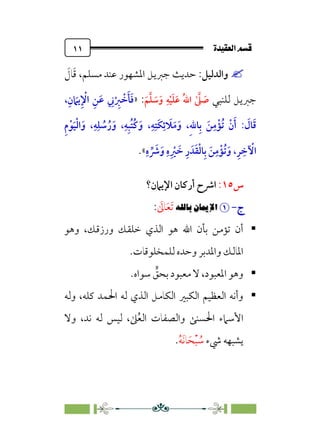 قسم العقيدة
١١
والدليل: حديث جبريل المشهور عند مسلم، قَالَ
جبريل للنبي صَلَّى اللهُ عَلَيْهِ وَسَلَّمَ: «فَأَخْبِرْنِي عَنِ الْإِيمَانِ،
قَالَ: أَنْ تُؤْمِنَ بِاللهِ، وَمَلَائِكَتِهِ، وَكُتُبِهِ، وَرُسُلِهِ، وَالْيَوْمِ
الْآخِرِ، وَتُؤْمِنَ بِالْقَدَرِ خَيْرِهِ وَشَرِّهِ».
س١٥: اشرح أركان الإيمان؟
ج- ١ الإيمان بالله تَعَالَىٰ:
أن تؤمن بأن الله هو الذي خلقك ورزقك، وهو
المالك والمدبر وحده للمخلوقات.
وهو المعبود، لا معبود بحقٍّ سواه.
وأنه العظيم الكبير الكامل الذي له الحمد كله، وله
الأسماء الحسنىٰ والصفات العُلىٰ، ليس له ند، ولا
يشبهه شيء سُبْحَانَهُ.